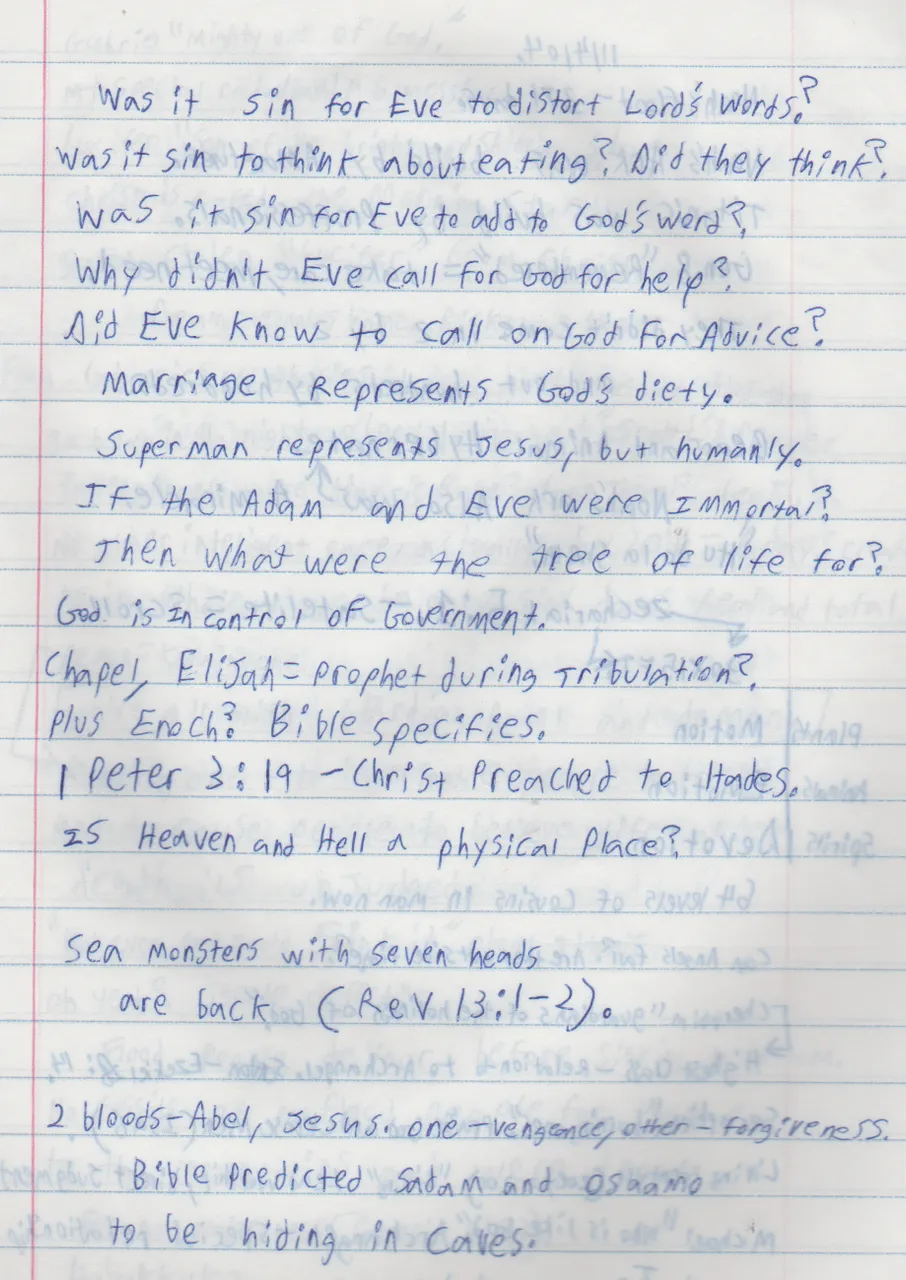 Was it sin for Eve to distort Lord's words?
Was it sin to think about eating? Did they think?
Was it sin for Eve to add to God's word?
Why didn't Eve call for God for help?
Did Eve know to call on God for Advice?
Marriage Represents God's diety.
Superman represents Jesus, but humanly.
If the Adam and Eve were Immortal?
Then what were the tree of life for?
God is in control of Government.
Chapel, Elijah = prophet during Tribulation?
plus Enoch? Bible specifies.
1 Peter 3:19 - Christ Preached to Hades.
Is Heaven and Hell a physical Place?
Sea monsters with seven heads
are back (Rev. 13:1-2).
2 bloods - Abel, Jesus. one - vengence, other - forgiveness.
Bible predicted Sadam and Osaamo
to be hiding in caves.